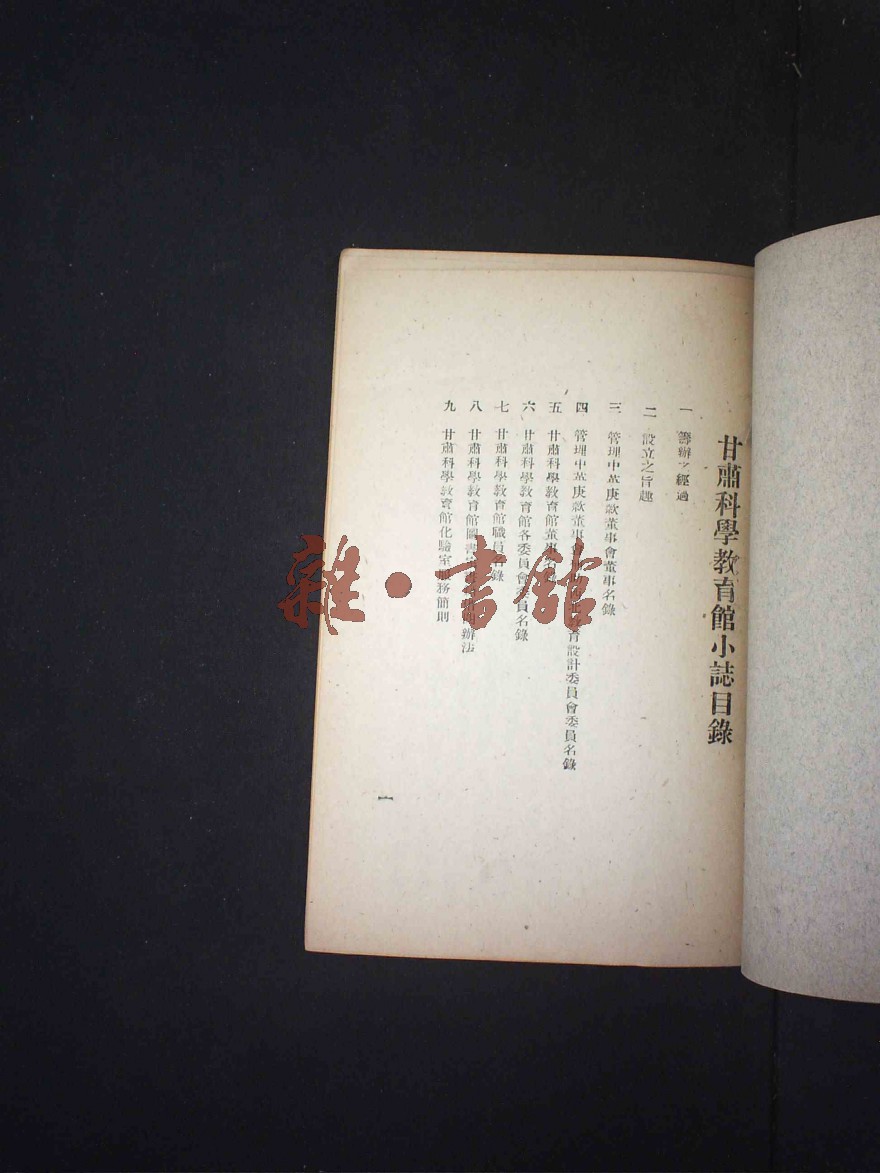 甘肅科學教育館小誌目錄
一 籌辦之經過
二 設立之旨趣
三 管理中英庚款董事會董事名錄
四 管理中英庚款董事會育設計委員會委員名錄
五 甘肅科學教育館董事名錄
六 甘肅科學教育館各委員會委員名錄
七 甘肅科學教育館職員名錄
八 甘肅科學教育館圖書辦法
九 甘肅科學教育館化驗室服務簡則
一
雜·書館